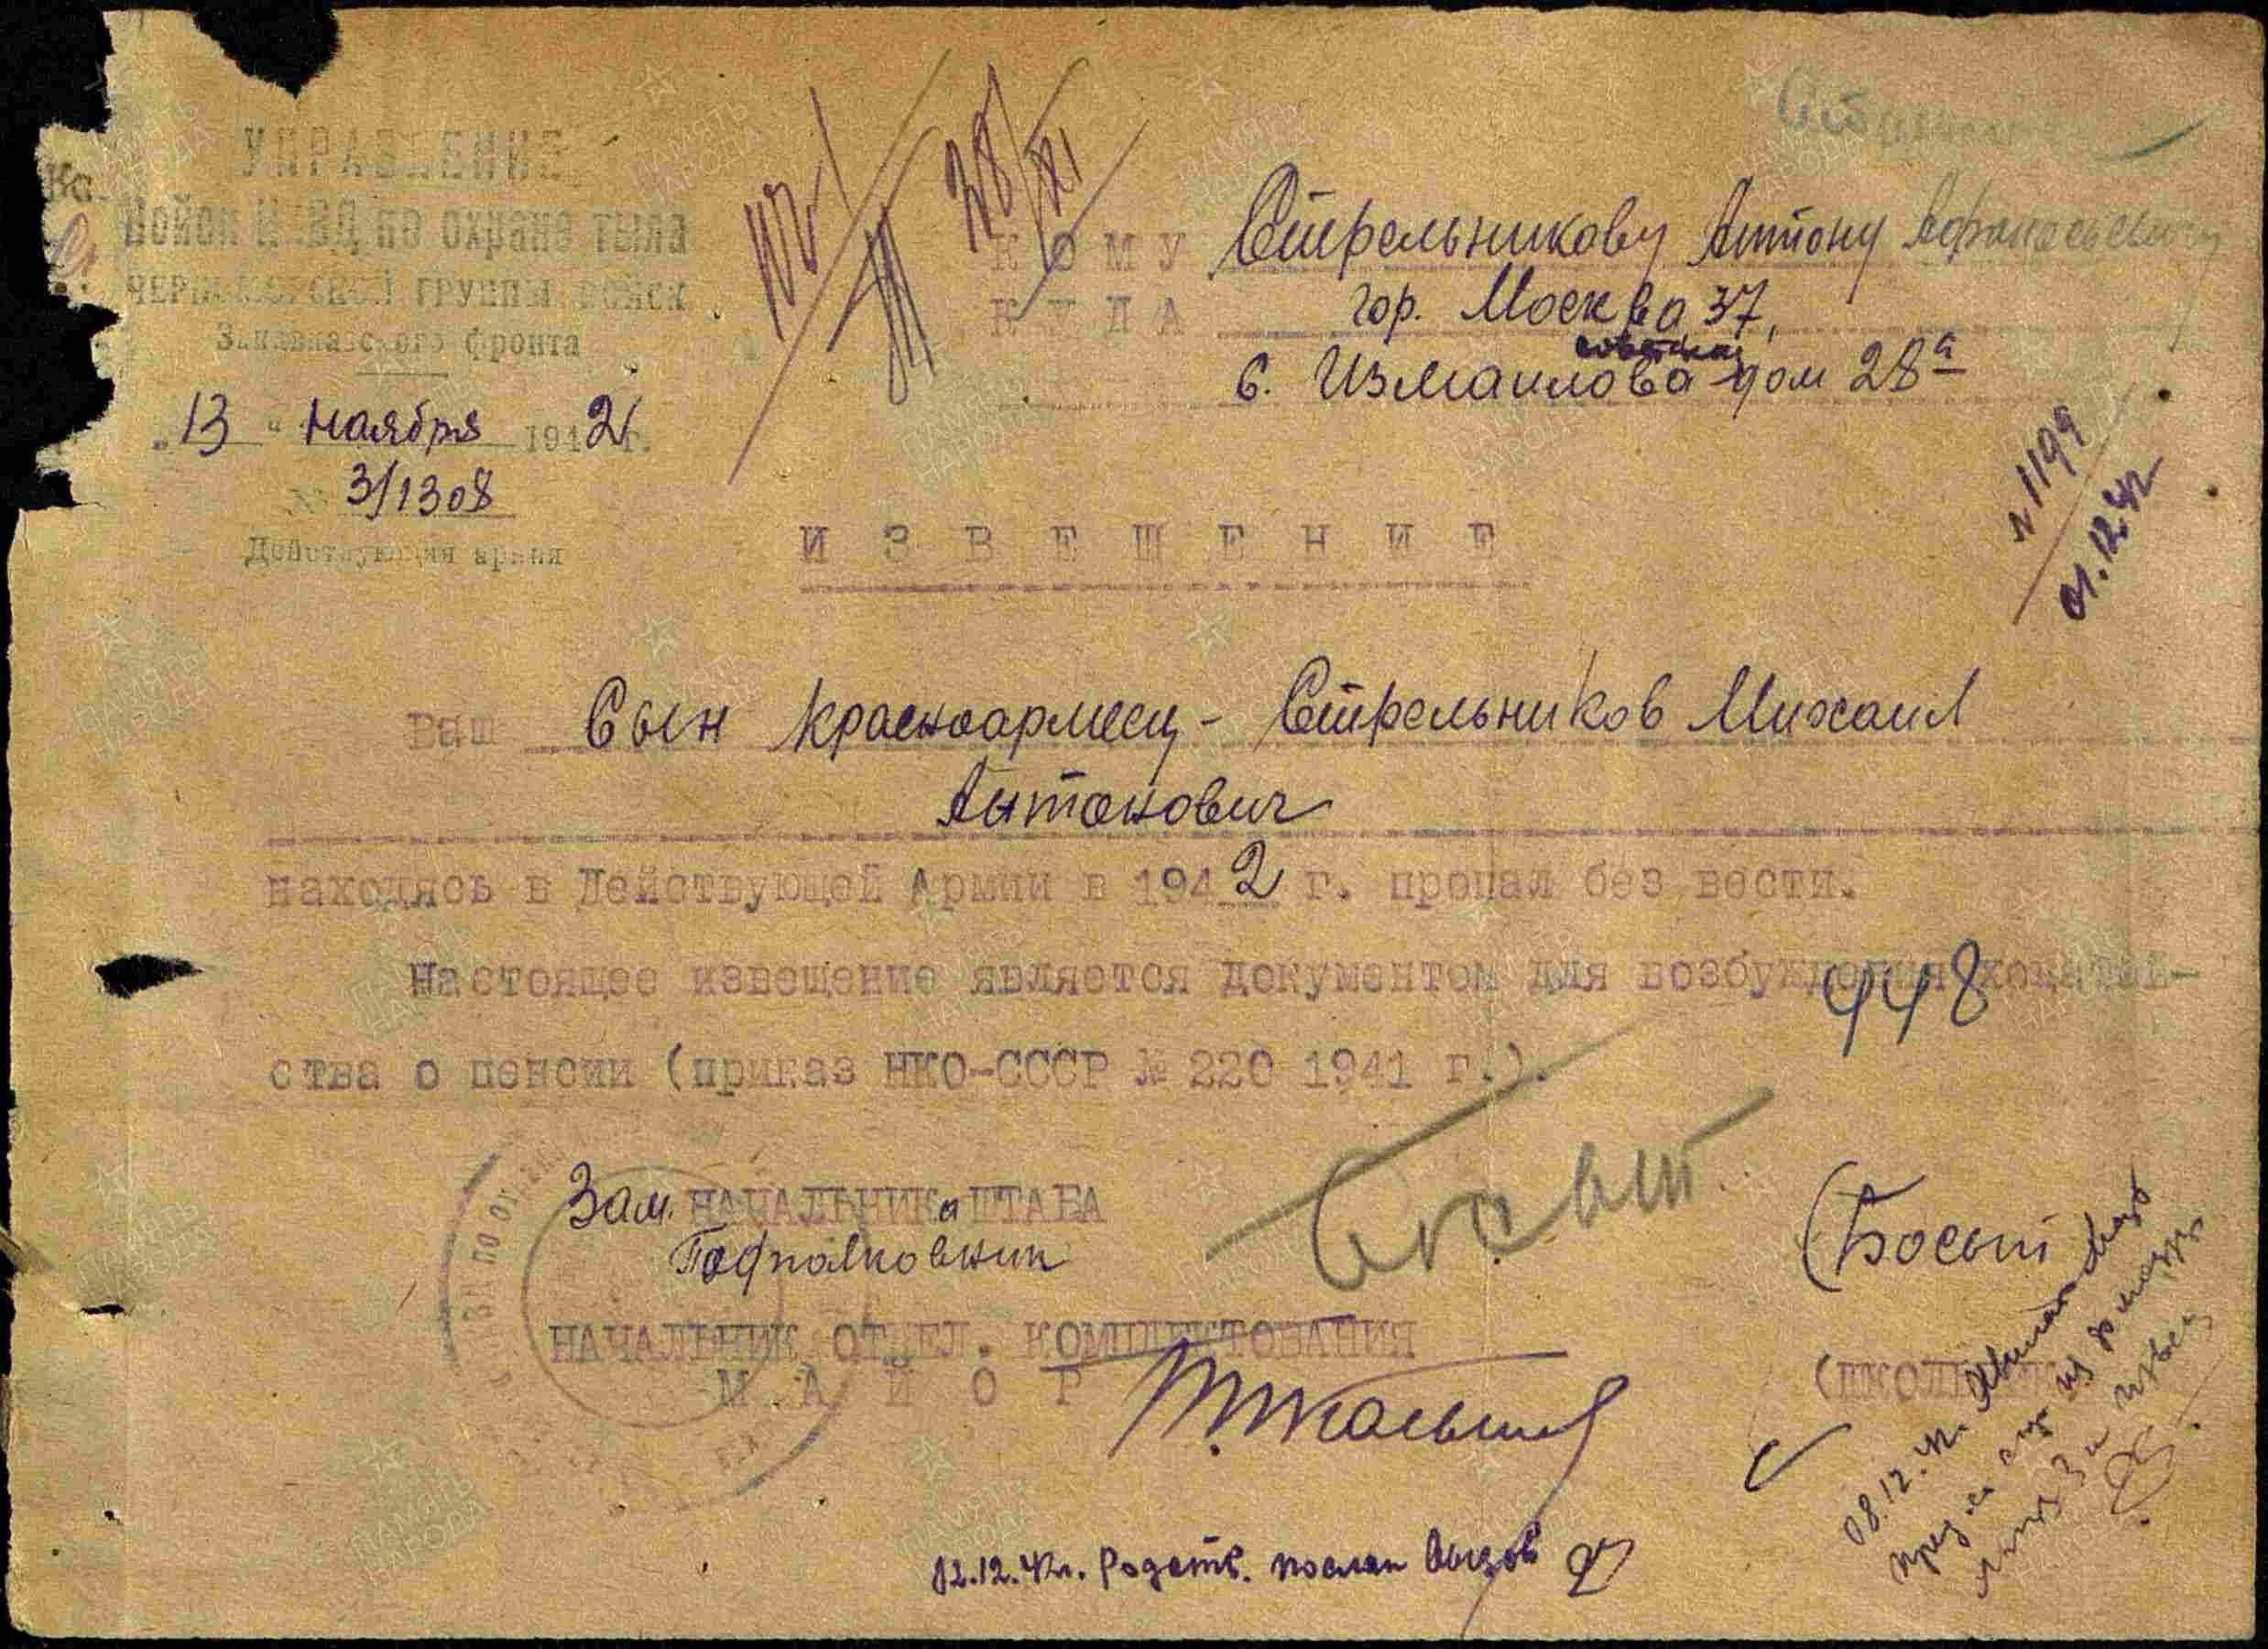 УПРАВЛЕНИЕ
Войск НКВД по охране тыла
ЧЕРНОМОРСКОЙ ГРУППЫ ВОЙСК
Закавказского фронта
„13" ноября 1942 г.
№ 3/1308
Действующая армия
28/XI
КОМУ Стрельникову Антону Афанасьевичу
КУДА гор. Москва 37,
советская
с. Измаилова дом 28а
№1199
01.12.42
ИЗВЕЩЕНИЕ
Ваш Сын красноармеец - Стрельников Михаил
Антонович
находясь в Действующей Армии в 1942 г. пропал без вести.
Настоящее извещение является документом для возбуждения ходатай-
ства о пенсии (приказ НКО-СССР № 220 1941 г.).
448
Зам. НАЧАЛЬНИКа ШТАБА
Подполковник
Босый
(Босый
НАЧАЛЬНИК ОТДЕЛ. КОМПЛЕКТОВАНИЯ
МАЙОР
08.12.42.
02.12.42г. Родств. послан вызов
ПАМЯТЬ НАРОДА